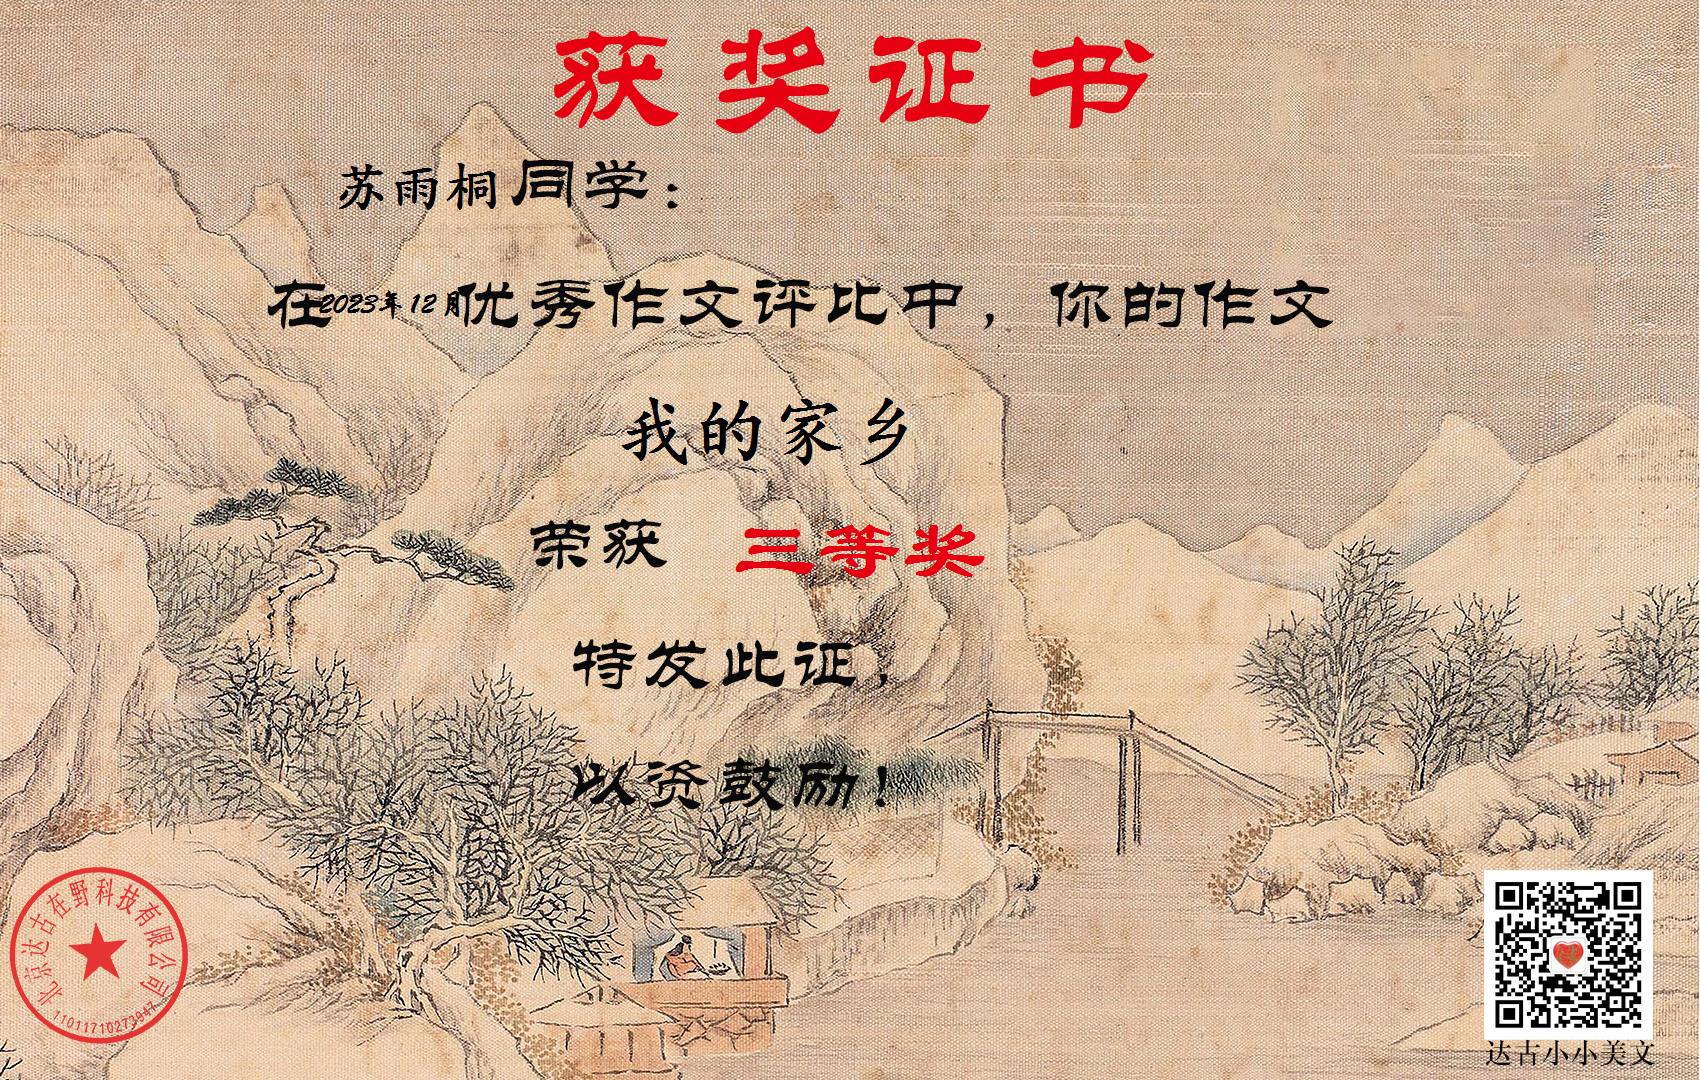 获奖证书
苏雨桐同学：
在2023年12月优秀作文评比中，你的作文
我的家乡
荣获 三等奖
特发此证，
以资鼓励！
北京达古在野科技有限公司
11011710273947
达古小小美文